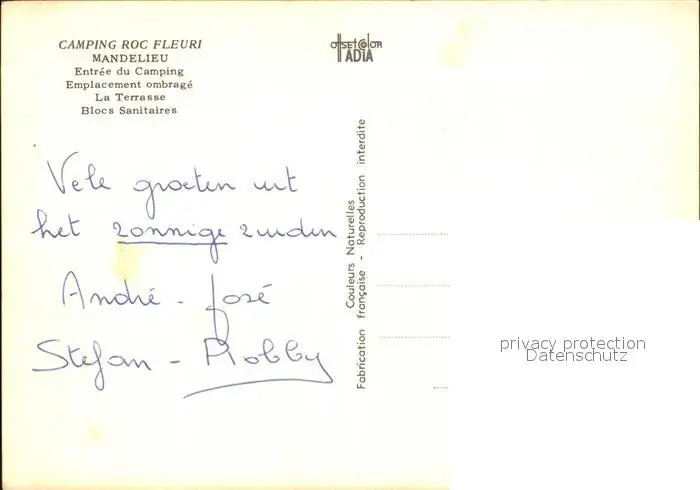 CAMPING ROC FLEURI
MANDELIEU
Entrée du Camping
Emplacement ombragé
La Terrasse
Blocs Sanitaires
OffsetColor
ADIA
Vele groeten uit
het zonnige zuiden
André - José
Stefan - Robby
Couleurs Naturelles
Fabrication française - Reproduction interdite
privacy protection
Datenschutz